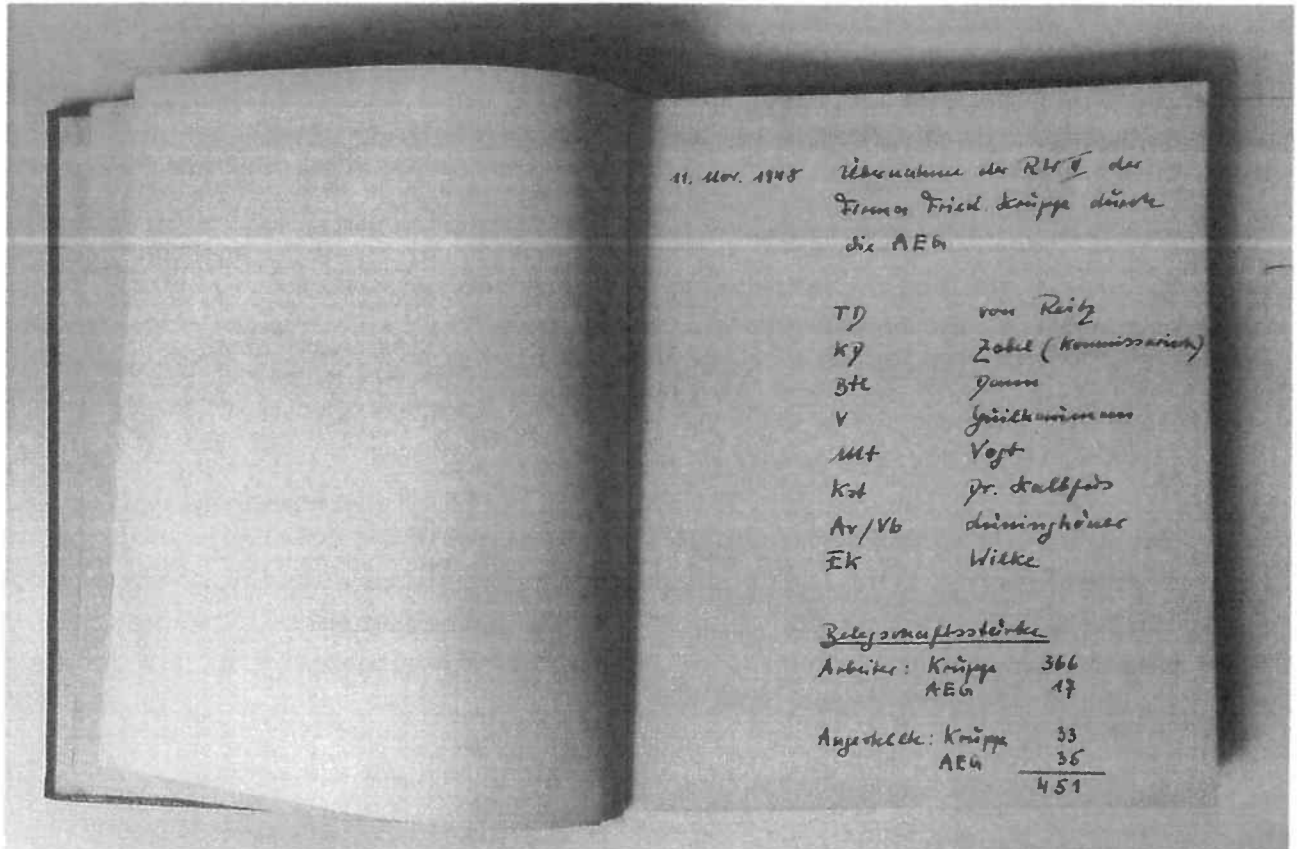 11. Nov. 1948 Übernahme der der
Firma Fried. Krupp durch
die AEG
TD von Reitz
KD Zabel (Kommissarisch)
Btl
V
Mt Vogt
Kst Dr.
Ar/Vb Lüninghöner
Ek Wilke
Belegschaftsstärke
Arbeiter: Krupp 366
AEG 17
Angestellte: Krupp 33
AEG 35
451